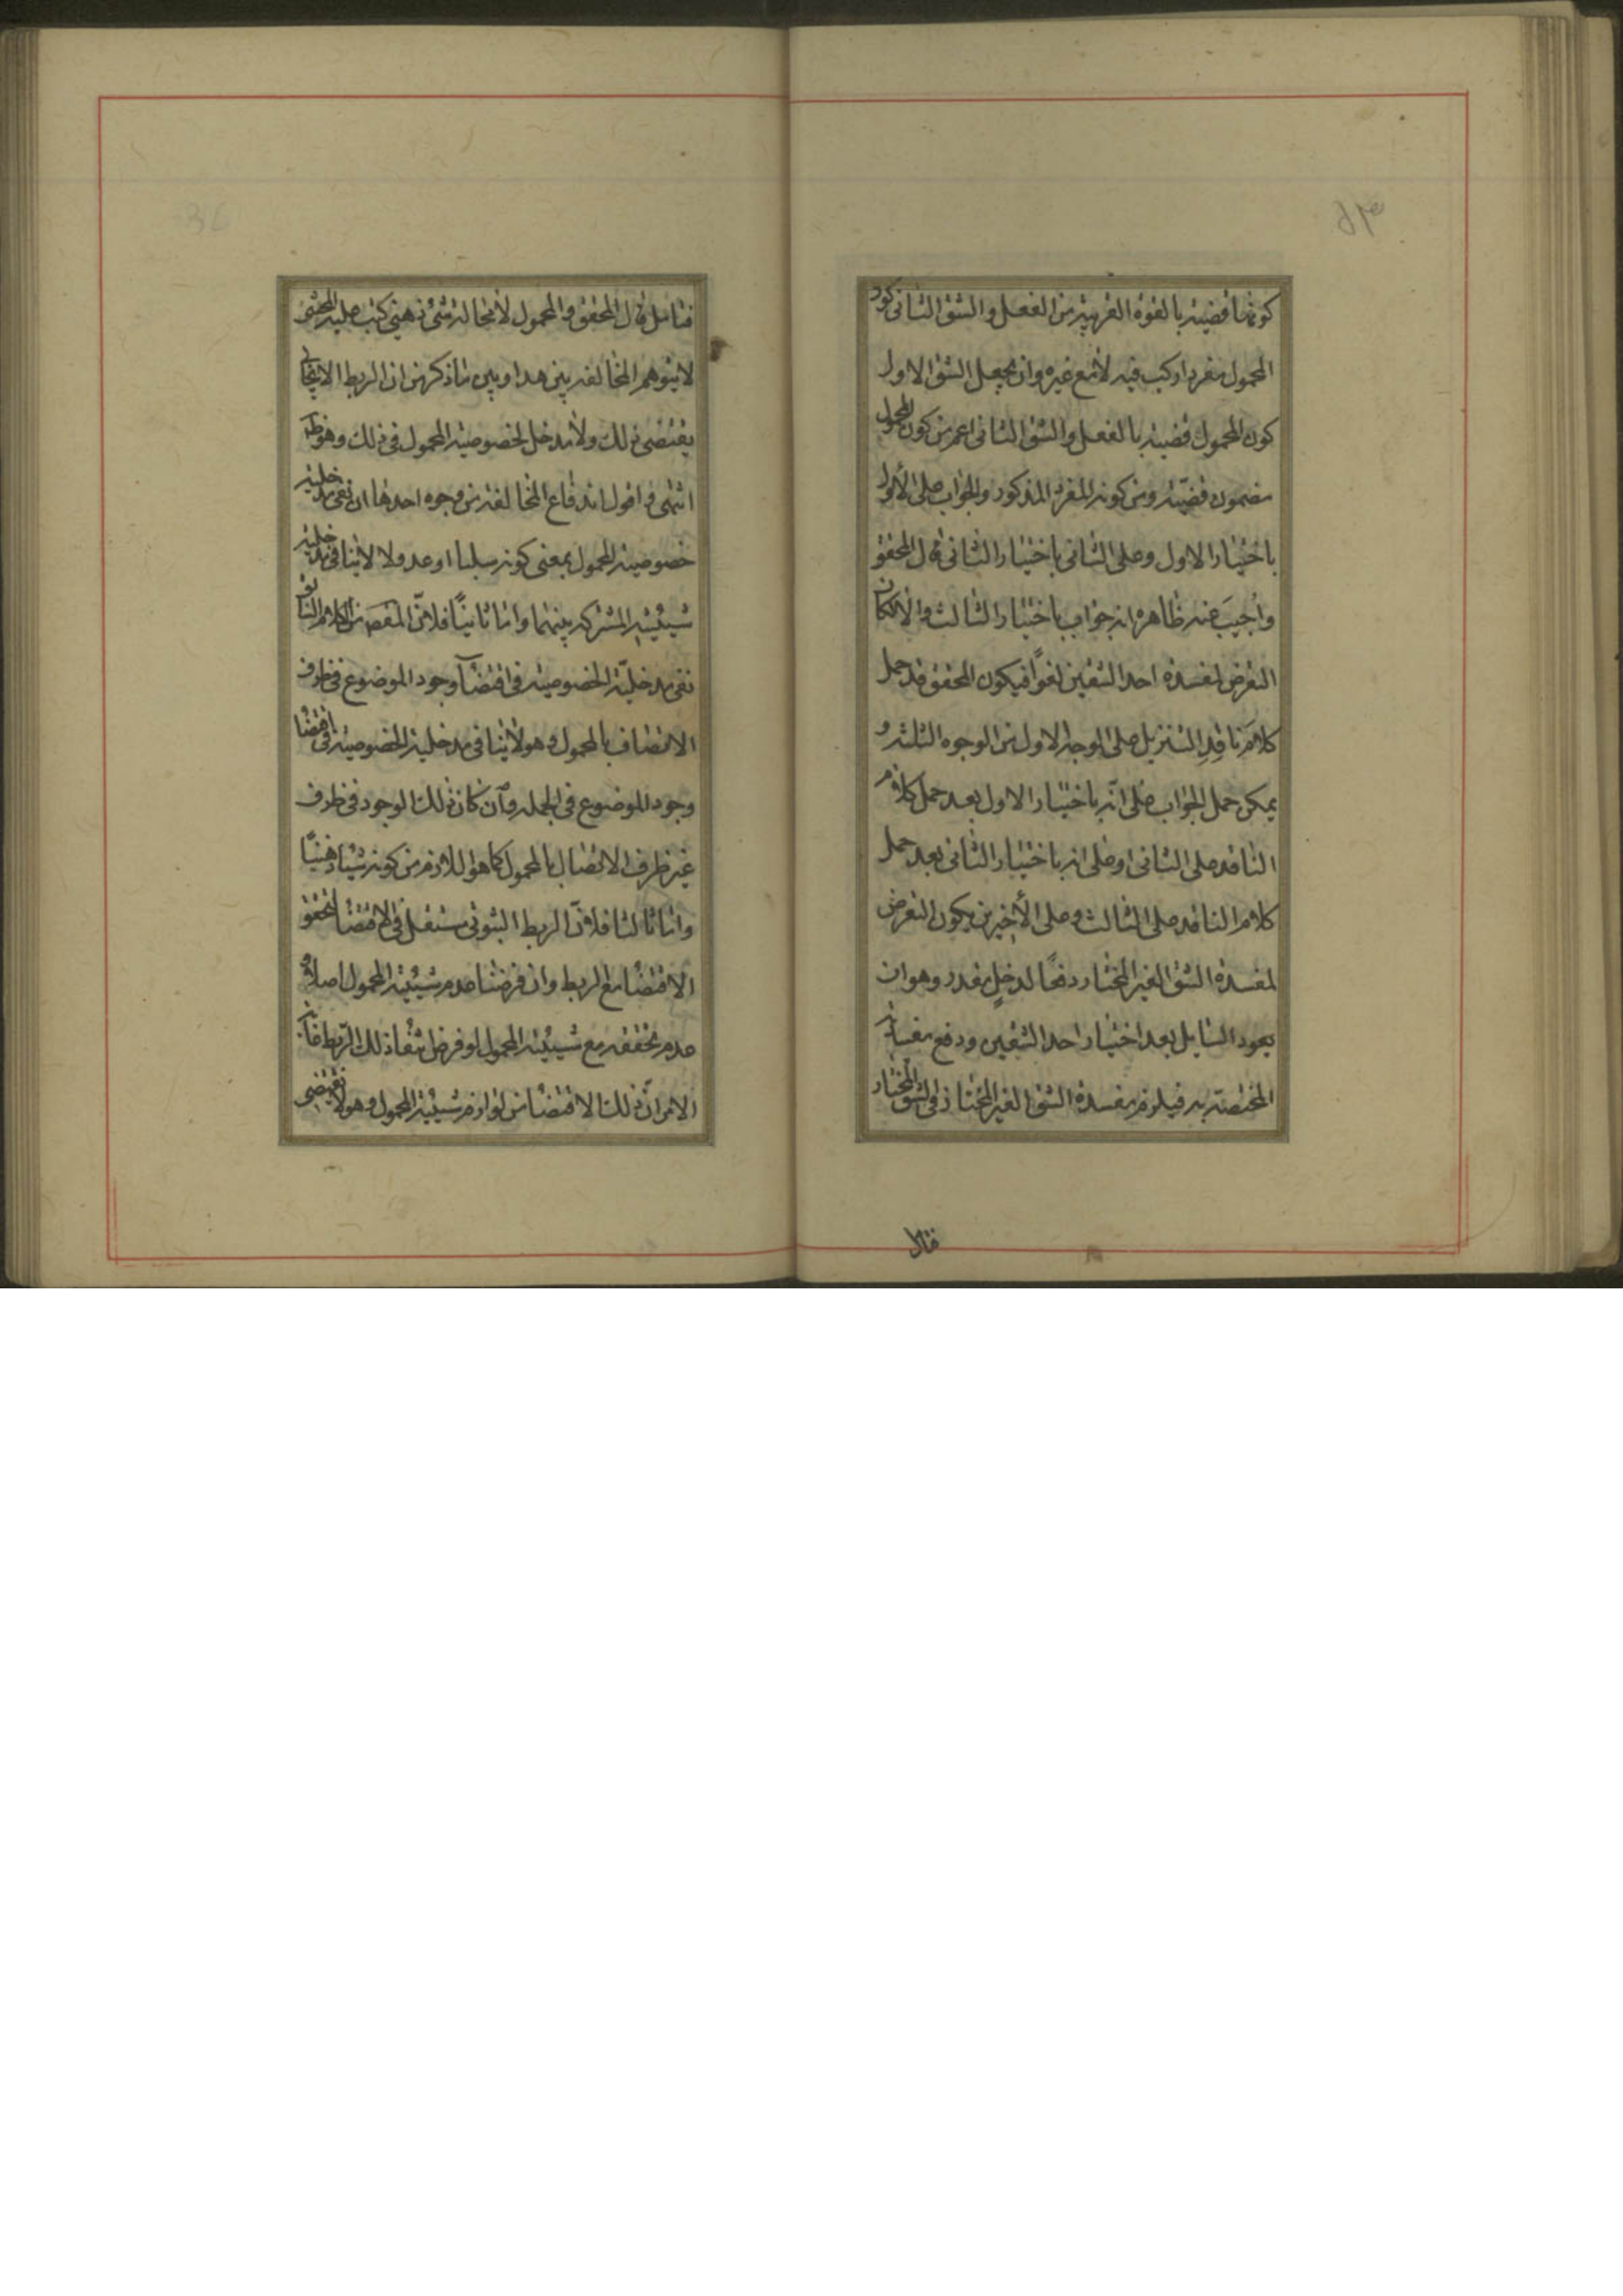 كونها قضية بالقوة القريبة من الفعل والشق الثانى كون
المحمول مفردا ركب فيه لا مع غيره وان يجعل الشق الاول
كون المحمول قضية بالفعل والشق الثانى اعم من كون المحمول
مضمون قضيّة ومن كونه المفرد المذكور والجواب على الأول
باختيار الاول وعلى الثانى باختيار الثانى قال المحقق
وأجيبَ عنه ظاهره انه جواب باختيار الثالث والا لكان
التعرض لمفسدة احد الشقين لغوًا فيكون المحقق قد حمل
كلامَ ناقدِ التنزيل على الوجه الاول من الوجوه الثلثة و
يمكن حمل الجواب على انّه باختيار الاول بعد حمل كلام
الناقد على الثانى او على انه باختيار الثانى بعد حمل
كلام الناقد على الثالث وعلى الأخيرين يكون التعرض
لمفسدة الشق الغير المختار دفعًا لدخلٍ مقدر وهو ان
يعود السايل بعد اختيار احد الشقين ودفع مفسدته
المختصة به فيلزم مفسدة الشق الغير المختار فى الشق المختار
فتامل
فتامل قال المحقق والمحمول لا محالة شئ ذهنى كتب عليه المحشى
لا يتوهم المخالفة بين هذا وبين ما ذكر من ان الربط الايجابى
يقتضى ذلك ولا مدخل لخصوصية المحمول فى ذلك وهو ظ
انتهى واقول اندفاع المخالفة من وجوه احدها ان نفى مدخلية
خصوصية المحمول بمعنى كونه سلبا او عدولا لا ينافى مدخلية
شيئيته المشتركة بينهما واما ثانيًا فلانّ المقصَ من الكلام السابق
نفى مدخليّة الخصوصية فى اقتضآ وجود الموضوع فى ظرف
الاتصاف بالمحمول وهو لا ينافى مدخلية الخصوصية فى اقتضا
وجود الموضوع فى الجملة وان كان ذلك الوجود فى ظرف
غير ظرف الاتصال بالمحمول كما هو اللازم من كونه شيئا ذهنيًا
واما ثالثا فلانّ الربط الثبوتى مستقل فى الاقتضا لتحقق
الاقتضا مع الربط وان فرضنا عدم شيئية المحمول اصلا و
عدم تحققه مع شيئية المحمول لو فرض انتفا ذلك الرّبط غاية
الامر انّ ذلك الاقتضا من لوازم شيئية المحمول وهو لا يقتضى